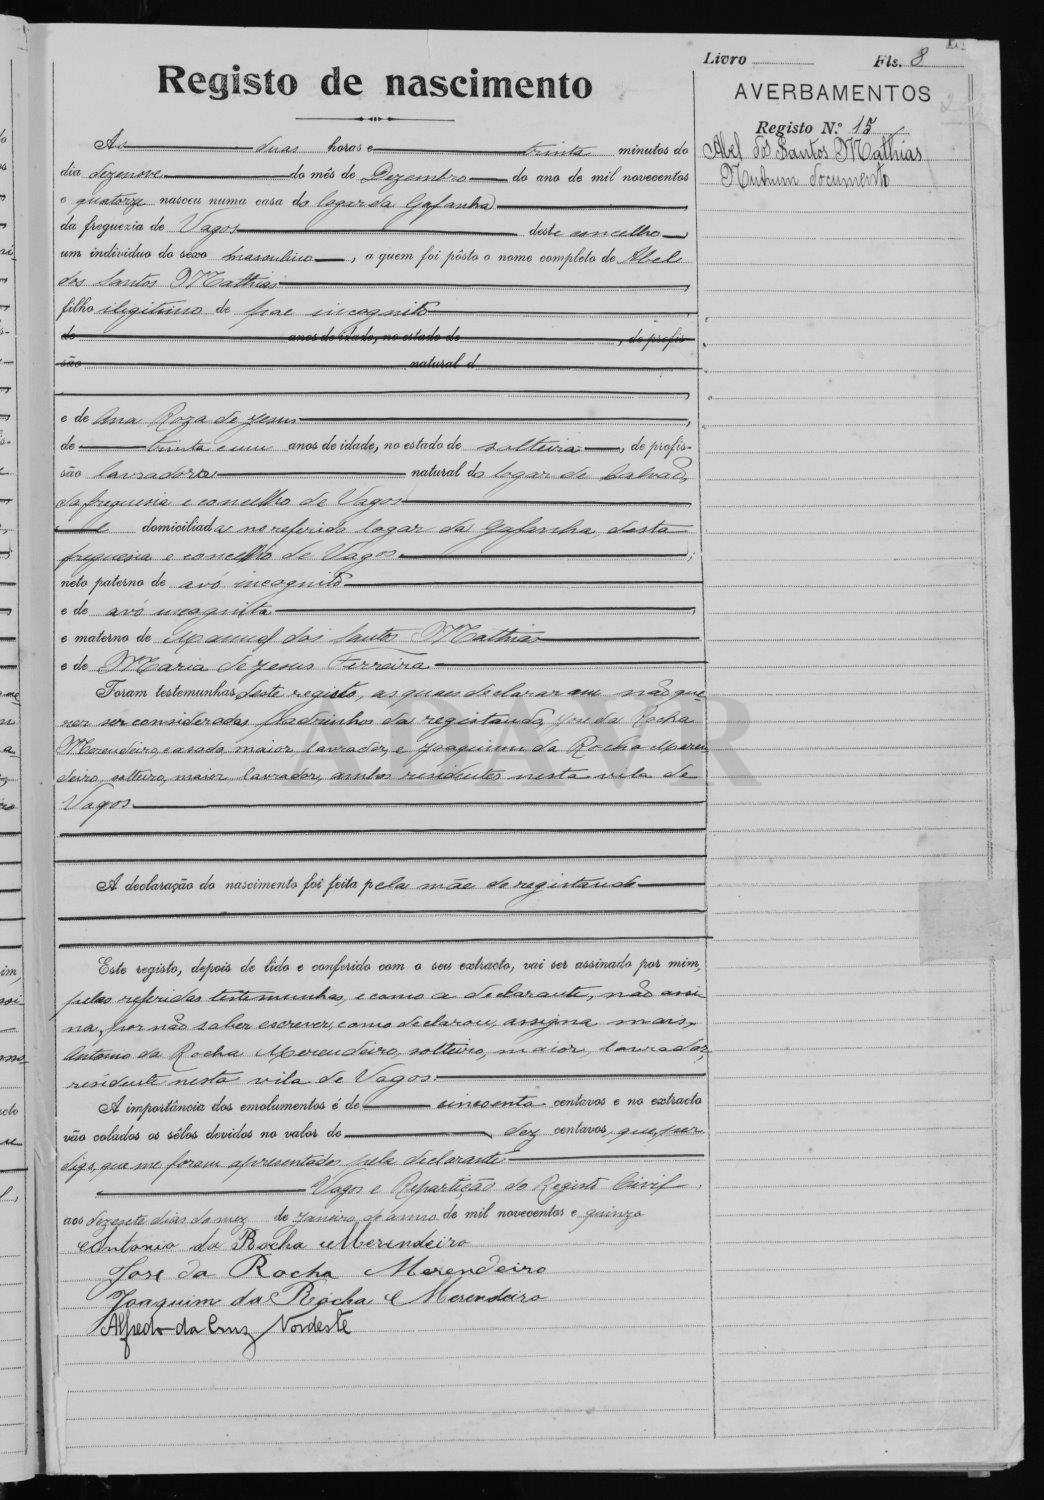 Livro Fls. 8
Registo de nascimento
AVERBAMENTOS
Registo N.º 15
Abel dos Santos Mathias
Nenhum documento
As duas horas e trinta minutos do
dia dezenove do mês de Dezembro do ano de mil novecentos
e quatorze nasceu numa casa do logar da Gafanha
da freguezia de Vagos deste concelho,
um individuo do sexo masculino, a quem foi pôsto o nome completo de Abel
dos Santos Mathias,
filho ilegitimo de pae incognito
de anos de idade, no estado de, de profis-
são natural d
e de Ana Roza de Jesus,
de trinta e um anos de idade, no estado de solteira, de profis-
são lavradora natural do logar de Calvão,
da freguesia e concelho de Vagos
e domiciliada no referido logar da Gafanha, desta
freguesia e concelho de Vagos;
neto paterno de avô incognito
e de avó incognita,
e materno de Manuel dos Santos Mathias
e de Maria de Jesus Ferreira
Foram testemunhas deste registo, as quaes declararam não que-
rer ser considerados padrinhos da registanda, José da Rocha
Merendeiro, casado, maior, lavrador, e Joaquim da Rocha Meren-
deiro, solteiro, maior, lavrador, ambos residentes nesta vila de
Vagos
ADAVR
A declaração do nascimento foi feita pela mãe do registando
Este registo, depois de lido e conferido com o seu extracto, vai ser assinado por mim,
pelas referidas testemunhas, e como a declarante, não assi-
na, por não saber escrever, como declarou, assigna mais,
Antonio da Rocha Merendeiro, solteiro, maior, lavrador,
residente nesta vila de Vagos.
A importância dos emolumentos é de cincoenta centavos e no extracto
vão colados os sêlos devidos no valor de dez centavos, que, per
digo, que me foram apresentados pela declarante
Vagos e Repartição do Registo Civil,
aos dezesete dias do mez de Janeiro do anno de mil novecentos e quinze
Antonio da Rocha Merendeiro
José da Rocha Merendeiro
Joaquim da Rocha Merendeiro
Alfredo da Cruz Nordeste